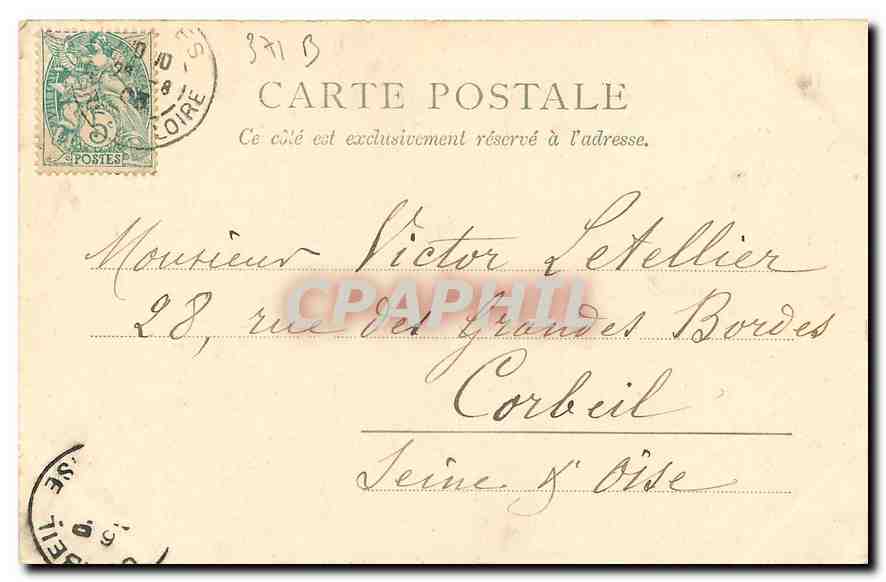 371 B
CARTE POSTALE
Ce côté est exclusivement réservé à l'adresse.
5c
POSTES
LOIRE
Monsieur Victor Letellier
CPAPHIL
28, rue des Grandes Bordes
Corbeil
Seine & Oise